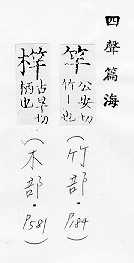 四聲篇海
竿
公安切
竹丨也
(竹部. P184)
古旱切
柄也
(木部. P581)